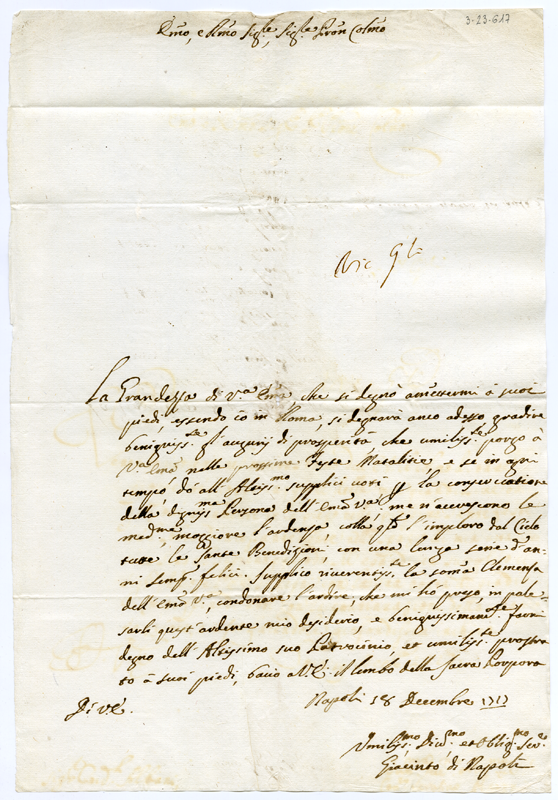 3-23-617
Emo, e Rmo Sig.re, Sig.re Pron Colmo
La Grandezza di V.a Em.a, che si degnò ammettermi à suoi
piedi essendo io in Roma, si degnarà anco adesso gradire
benigniss.te gl'augurij di prosperità che umiliss.te porgo à
V.a Em.a nelle prossime Feste Natalitie, e se in ogni
tempo, dò all'Altiss.mo supplici voti per la conservatione
della digniss.ma Persona dell'Em.a V.a, me n'accrescono le
med.me, maggiore l'ardenza, colla q.le l'imploro dal Cielo
tutte le Sante Benedizioni, con una lunga serie d'an-
ni semp. felici. Supplico riverentiss.te la somma Clemenza
dell'Em.a V.a, condonare l'ardire, che mi hò preso, in pale-
sarli quest'ardente mio desiderio, e benignissimam.te farmi
degno dell'Altissimo suo Patrocinio, et umiliss.te prostra
to à suoi piedi, bacio à V.E. il lembo della Sacra Porpora
Di V.E.
Napoli 18 Decembre 1717
Umiliss.mo Div.mo et Oblig.mo Ser.re
Giacinto di Napoli